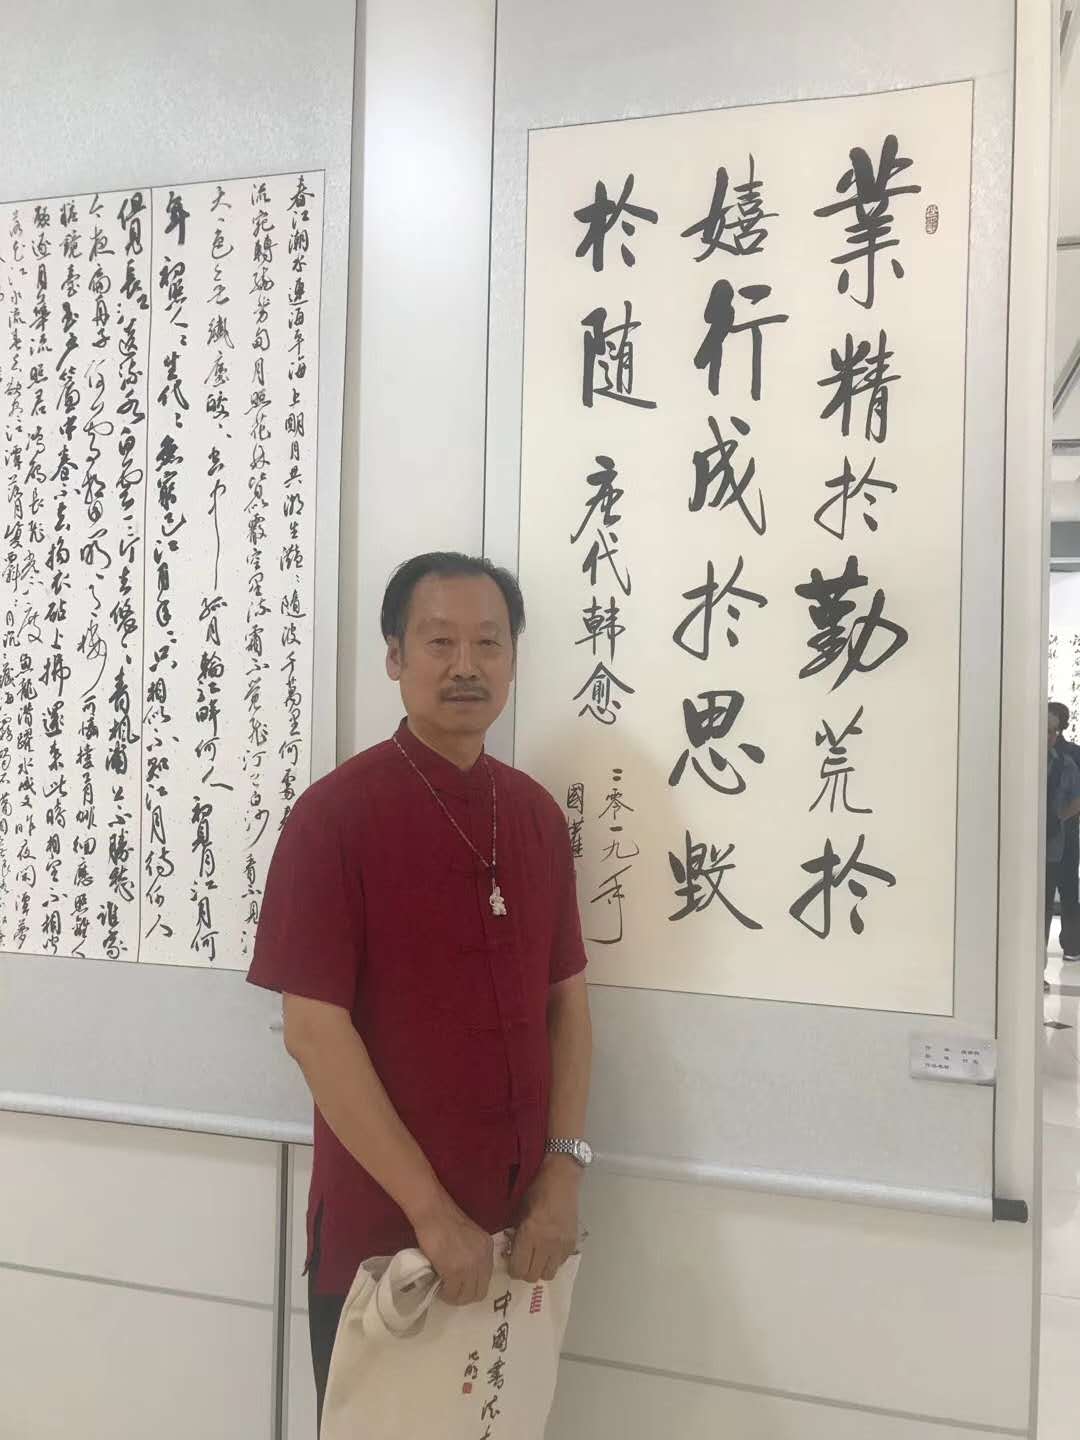 業精於勤荒於
嬉行成於思毀
於隨 唐代韓愈
二零一九年
國
春江潮水連海平海上明月共潮生灩々隨波千萬里何處春
流宛轉繞芳甸月照花林皆似霰空里流霜不覺飛汀上白沙看不見江
天一色無纖塵皎々空中孤月輪江畔何人初見月江月何
年初照人々生代々無窮已江月年々只相似不知江月待何人
但見長江送流水白雲一片去悠々青楓浦上不勝愁誰家
今夜扁舟子何處相思明月樓可憐樓月徘徊應照離人
妝鏡臺玉戶簾中卷不去搗衣砧上拂還來此時相望不相聞
願逐月華流照君鴻雁長飛光不度魚龍潛躍水成文昨夜閒潭夢
江水流春去欲盡江潭落月復
中國書法